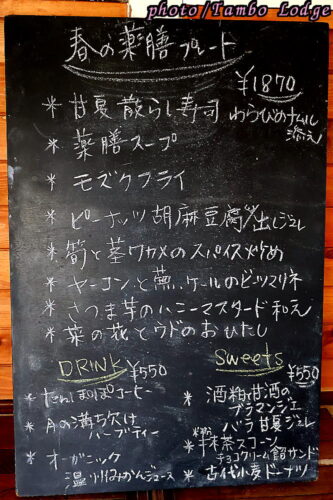 photo/Tambo Lodge
春の薬膳プレート
¥1870
* 甘夏散らし寿司 わらびのナムル
添え
* 薬膳スープ
* モズクフライ
* ピーナッツ胡麻豆腐 出しジュレ
* 筍と茎ワカメのスパイス炒め
* ヤーコンと蕪、ケールのビーツマリネ
* さつま芋のハニーマスタード和え
* 菜の花とウドのおひたし
DRINK ¥550
* たんぽぽコーヒー
* 月の満ち欠け
ハーブティー
* オーガニック
温 みかんジュース
Sweets
¥550
* 酒粕甘酒の
ブラマンジェ
バラ甘夏ジュレ
* 米粉抹茶スコーン
チョコクリーム餡サンド
* 古代小麦ドーナツ